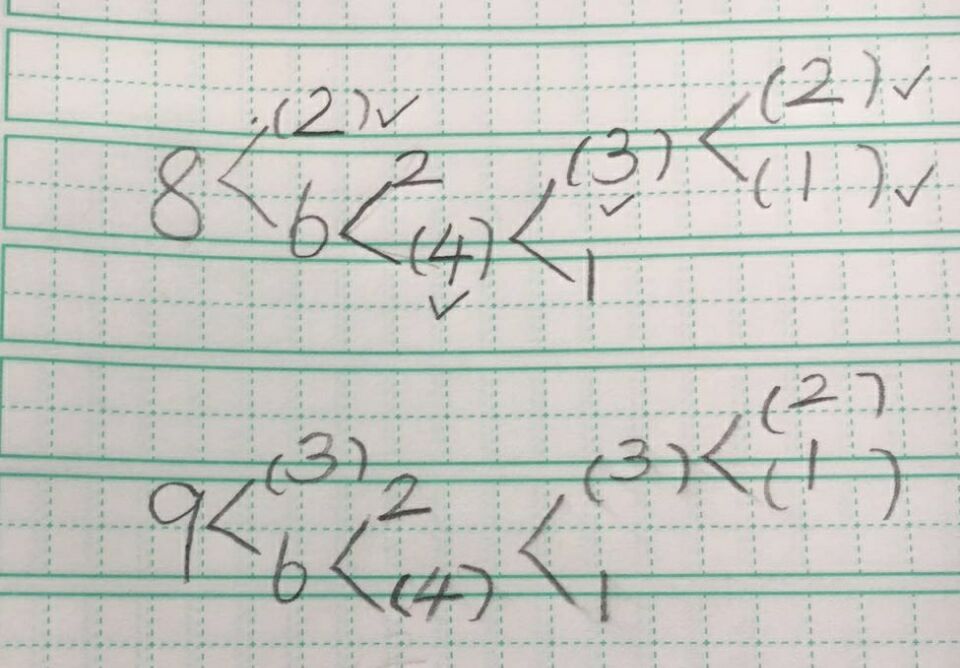 8 < (2)✓ 6 < 2 (4)✓ < (3)✓ 1 < (2)✓ (1)✓
9 < (3) 6 < 2 (4) < (3) 1 < (2) (1)